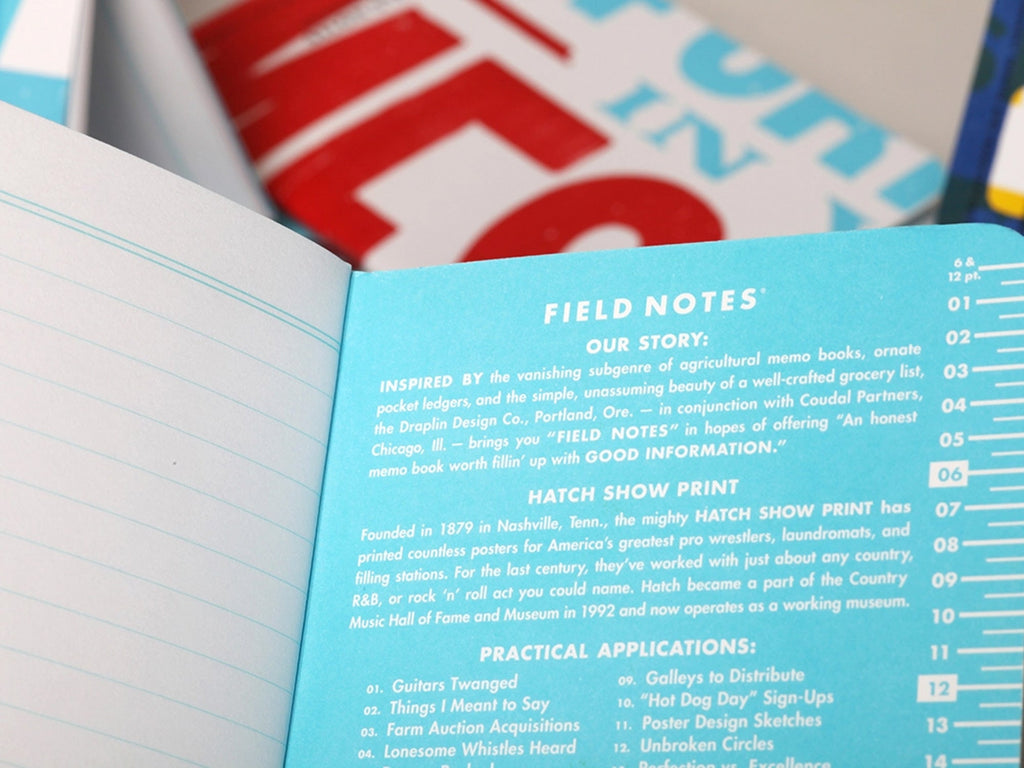 IN
FIELD NOTES®
OUR STORY:
INSPIRED BY the vanishing subgenre of agricultural memo books, ornate
pocket ledgers, and the simple, unassuming beauty of a well-crafted grocery list,
the Draplin Design Co., Portland, Ore. — in conjunction with Coudal Partners,
Chicago, Ill. — brings you “FIELD NOTES” in hopes of offering “An honest
memo book worth fillin’ up with GOOD INFORMATION.”
HATCH SHOW PRINT
Founded in 1879 in Nashville, Tenn., the mighty HATCH SHOW PRINT has
printed countless posters for America’s greatest pro wrestlers, laundromats, and
filling stations. For the last century, they’ve worked with just about any country,
R&B, or rock ’n’ roll act you could name. Hatch became a part of the Country
Music Hall of Fame and Museum in 1992 and now operates as a working museum.
PRACTICAL APPLICATIONS:
01. Guitars Twanged
02. Things I Meant to Say
03. Farm Auction Acquisitions
04. Lonesome Whistles Heard
09. Galleys to Distribute
10. “Hot Dog Day” Sign-Ups
11. Poster Design Sketches
12. Unbroken Circles
Perfection vs. Excellence
6 &
12 pt.
01
02
03
04
05
06
07
08
09
10
11
12
13
14